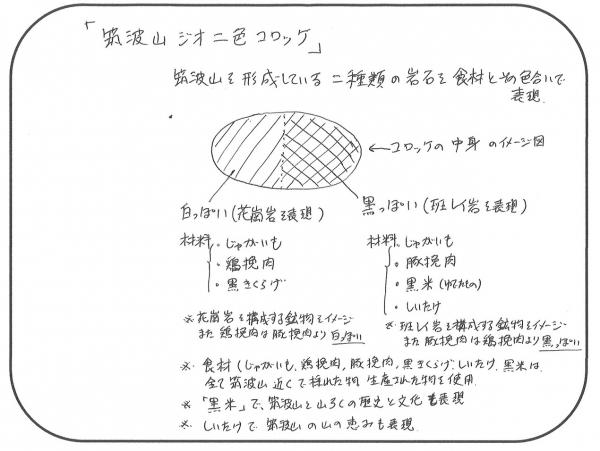 「筑波山ジオ二色コロッケ」
筑波山を形成している二種類の岩石を食材とその色合いで
表現
←コロッケの中身のイメージ図
白っぽい(花崗岩を表現)
黒っぽい(班レイ岩を表現)
材料・じゃがいも
・鶏挽肉
・黒きくらげ
材料・じゃがいも
・豚挽肉
・黒米(ゆでたもの)
・しいたけ
※花崗岩を構成する鉱物をイメージ
また鶏挽肉は豚挽肉より白っぽい
※班レイ岩を構成する鉱物をイメージ
また豚挽肉は鶏挽肉より黒っぽい
※食材(じゃがいも、鶏挽肉、豚挽肉、黒きくらげ、しいたけ、黒米は
全て筑波山近くで採れた物 生産された物を使用
※「黒米」で、筑波山と山ろくの歴史と文化も表現
※しいたけで筑波山の山の恵みも表現